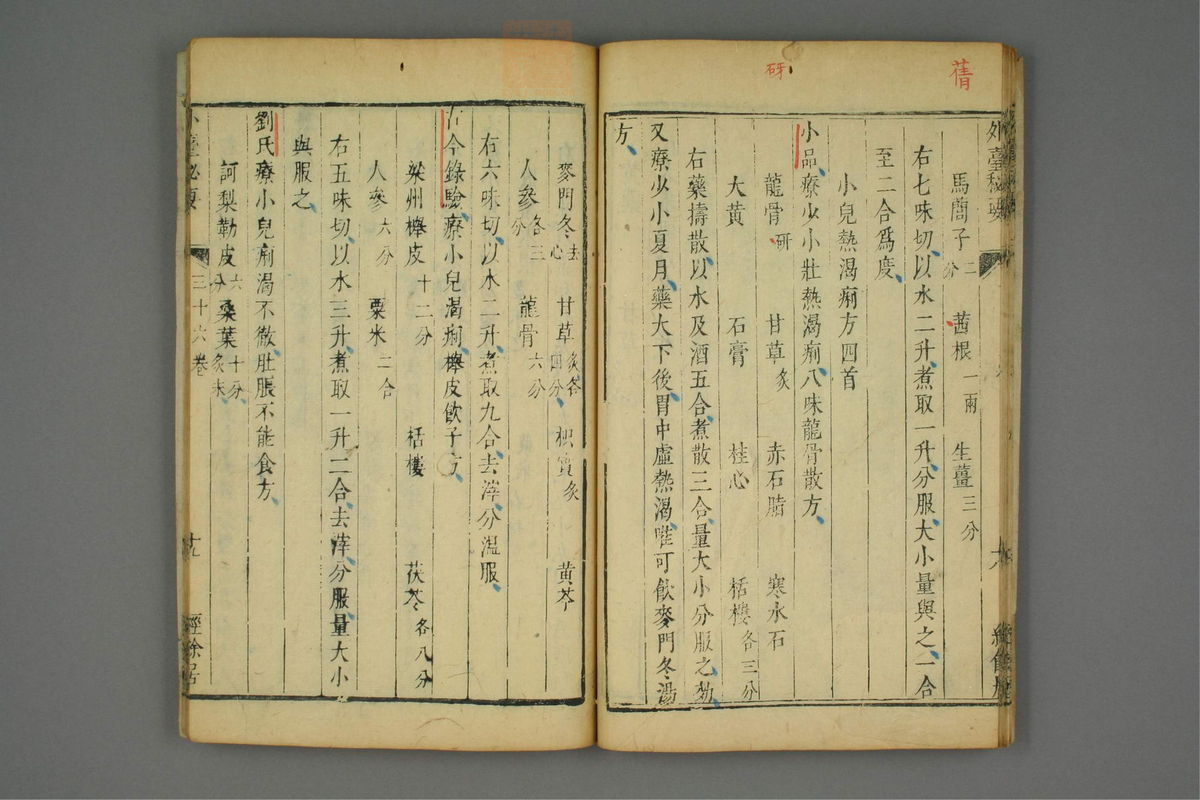 蒨
砑
外臺秘要
馬藺子二分 茜根一兩 生薑三分
右七味切以水二升煮取一升分服大小量與之一合
至二合爲度
小兒熱渴痢方四首
小品療少小壯熱渴痢八味龍骨散方
龍骨研 甘草炙 赤石脂 寒水石
大黄 石膏 桂心 栝樓各三分
右藥擣散以水及酒五合煮散三合量大小分服之効
又療少小夏月藥大下後胃中虛熱渴唯可飲麥門冬湯
方
麥門冬去心 甘草炙各四分 枳實炙 黄芩
人參各三分 龍骨六分
右六味切以水二升煮取九合去滓分溫服
古今錄驗療小兒渴痢櫸皮飲子方
梁州櫸皮十二分 栝樓 茯苓各八分
人參六分 粟米二合
右五味切以水三升煮取一升二合去滓分服量大小
與服之
劉氏療小兒痢渴不徹肚脹不能食方
訶梨勒皮六分 桑葉十分炙末
外臺秘要 三十六卷 十九 經餘居